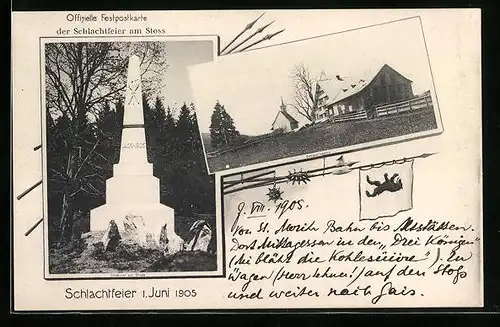 Offizielle Festpostkarte
der Schlachtfeier am Stoss
1405-1905
Schlachtfeier 1. Juni 1905
9. VIII. 1905.
Von St. Moritz Bahn bis Altstätten.
Dort Mittagessen in den „Drei Königen"
blüht die ). Zu
Wagen (Herr ) auf den Stoß
und weiter nach Gais.